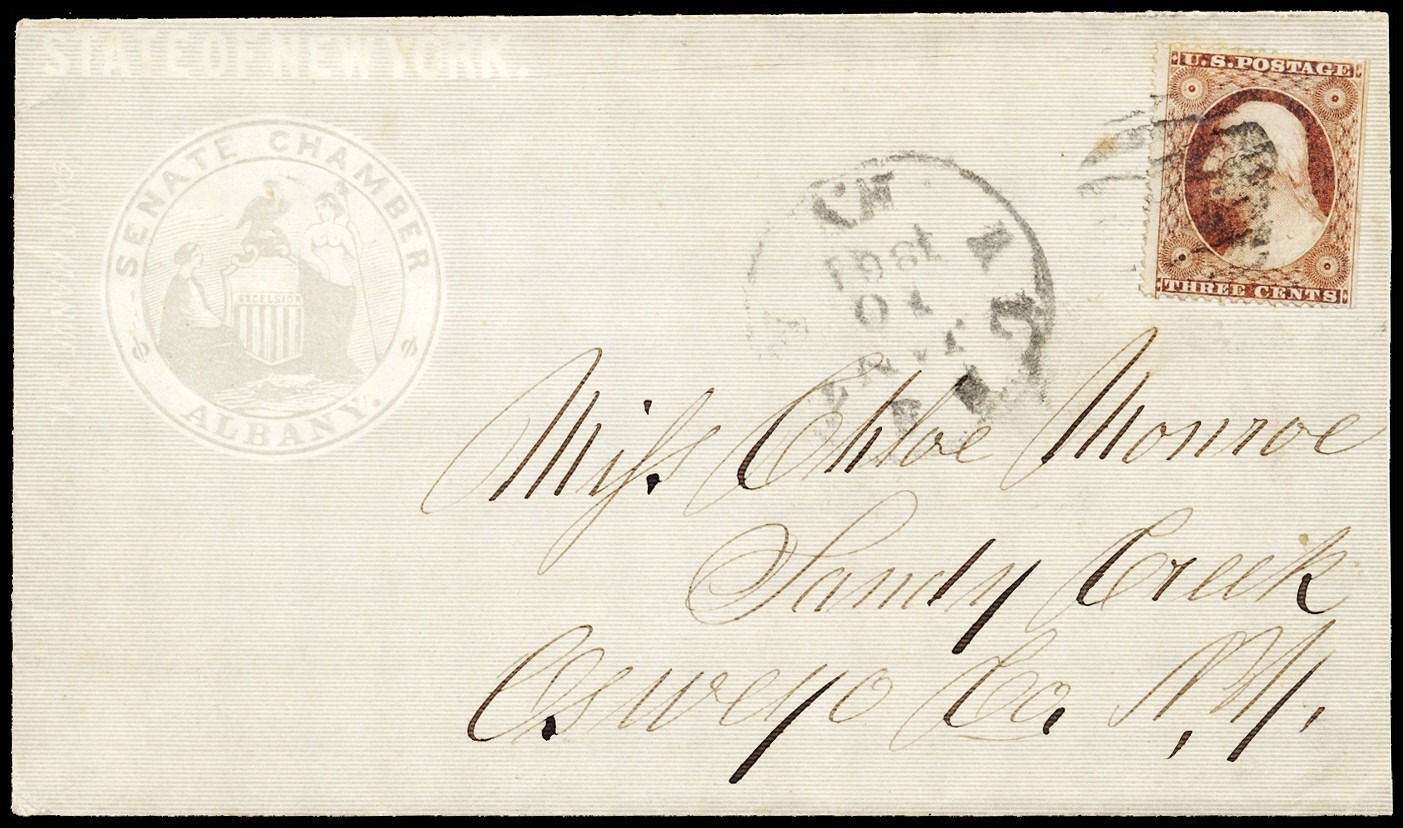 STATE OF NEW YORK.
SENATE CHAMBER
EXCELSIOR
ALBANY.
U.S. POSTAGE
THREE CENTS
1861
10
Miss. Chloe Monroe
Sandy Creek
Oswego Co. N.Y.